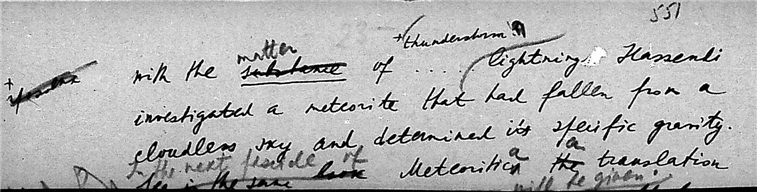 551
+thunderstorm
matter
with the substance of .... lightning. Gassendi
investigated a meteorite that had fallen from a
cloudless sky and determined its specific gravity.
In the next fascicle of a a
is the same Meteoritica the translation
will be given.